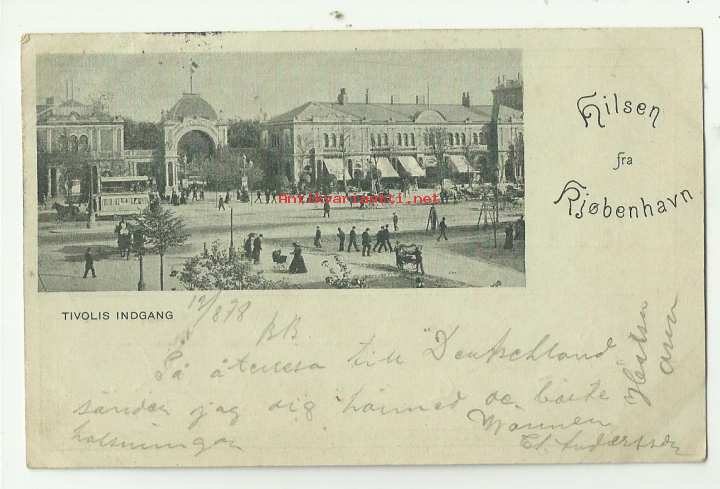 Hilsen
fra
Kjøbenhavn
Antikvariaatti.net
TIVOLIS INDGANG
12/8 98
På återresa till Deutschland
sänder jag dig härmed
helsningar
Vännen